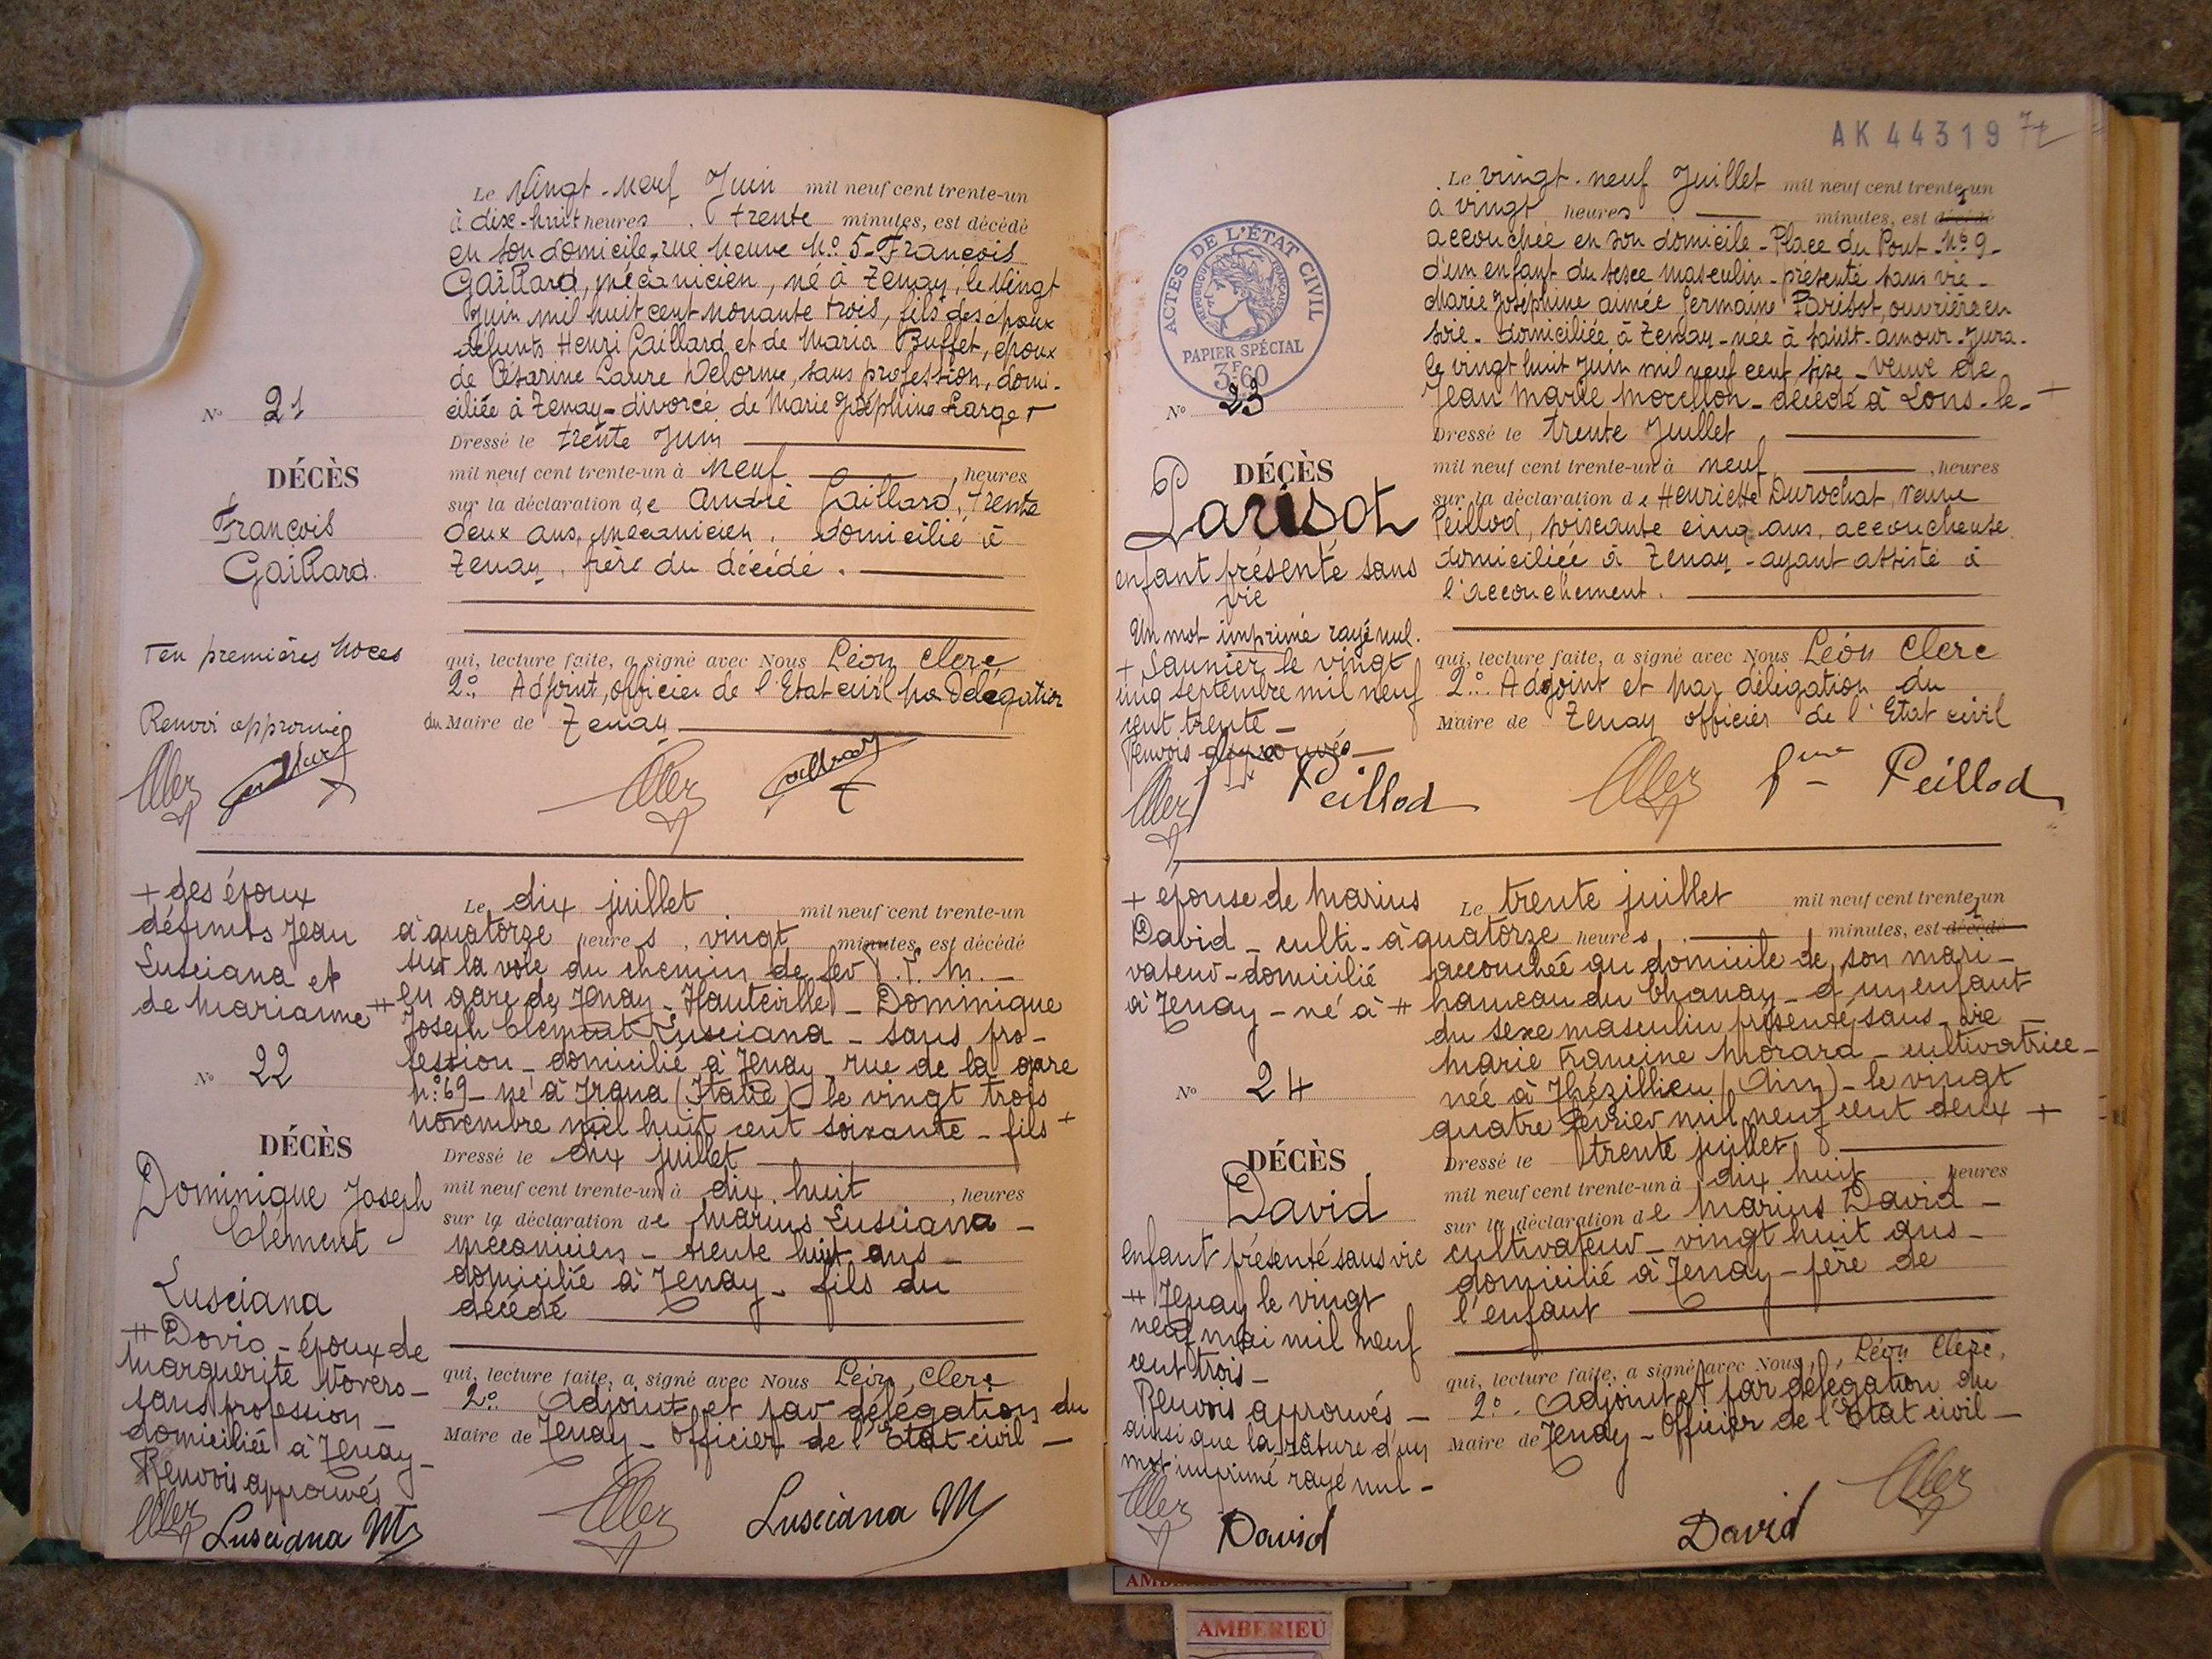 Le Vingt-neuf Juin mil neuf cent trente-un
à dix-huit heures, trente minutes, est décédé
en son domicile, rue Neuve N° 5 - François
Gaillard, mécanicien, né à Tenay, le Vingt
Juin mil huit cent nonante trois, fils des époux
défunts Henri Gaillard et de Maria Buffet, époux
de Césarine Laure Delorme, sans profession, domi-
ciliée à Tenay - divorcé de Marie Joséphine Larget
N° 21
Dressé le trente Juin
DÉCÈS
mil neuf cent trente-un à Neuf, heures
sur la déclaration de André Gaillard, trente
François
deux ans, mécanicien, domicilié à
Gaillard.
Tenay, frère du décédé.
T en premières Noces
qui, lecture faite, a signé avec Nous Léon Clerc
2° Adjoint, officier de l'Etat civil par Délégation
Renvoi approuvé
du Maire de Tenay
+ des époux
défunts Jean
Lusciana et
de Marianne #
Le dix juillet mil neuf cent trente-un
à quatorze heures, vingt minutes, est décédé
sur la voie du chemin de fer P. L. M. -
en gare de Tenay - Hauteville - Dominique
Joseph Clément Lusciana - sans pro-
fession - domicilié à Tenay rue de la gare
N° 69 - né à (Italie) - le vingt trois
novembre mil huit cent soixante - fils +
N° 22
DÉCÈS
Dressé le dix juillet
Dominique Joseph
Clément
Lusciana
mil neuf cent trente-un à dix huit, heures
sur la déclaration de Marius Lusciana -
mécanicien - trente huit ans -
domicilié à Tenay - fils du
décédé
# Dovio - époux de
Marguerite Vovero -
sans profession -
domiciliée à Tenay -
Renvois approuvés
qui, lecture faite, a signé avec Nous Léon Clerc
2° Adjoint et par délégation du
Maire de Tenay - Officier de l'Etat civil -
Lusciana M
Lusciana M
AK 44319 72
ACTES DE L'ÉTAT CIVIL
RÉPUBLIQUE FRANÇAISE
PAPIER SPÉCIAL
3F60
Le vingt-neuf Juillet mil neuf cent trente-un
à vingt heures minutes, est décédé
accouchée en son domicile - Place du Pont - N° 9 -
d'un enfant du sexe masculin - présenté sans vie -
Marie Joséphine aimée Germaine Parisot, ouvrière en
soie - domiciliée à Tenay - née à Saint-amour - Jura -
le vingt huit Juin mil neuf cent six - veuve de
Jean Marie Morellon - décédé à Lons-le- +
N° 23
Dressé le trente Juillet
DÉCÈS
mil neuf cent trente-un à neuf, heures
Parisot
enfant présenté sans
vie
sur la déclaration de Henriette Durochat, veuve
Peillod, soixante cinq ans, accoucheuse
domiciliée à Tenay - ayant assisté à
l'accouchement.
Un mot imprimé rayé nul.
+ Saunier le vingt
cinq septembre mil neuf
cent trente -
Renvois approuvés -
qui, lecture faite, a signé avec Nous Léon Clerc
2° Adjoint et par délégation du
Maire de Tenay officier de l'Etat civil
Peillod
Peillod
+ épouse de Marius
David - culti-
vateur - domicilié
à Tenay - né à #
Le trente juillet mil neuf cent trente-un
à quatorze heures minutes, est décédé
accouchée au domicile de son mari -
hameau du Chanay - d'un enfant
du sexe masculin présenté sans vie -
Marie Francine Morard - cultivatrice -
née à Thézillieu (Ain) - le vingt
quatre février mil neuf cent deux +
N° 24
DÉCÈS
Dressé le trente juillet
David
enfant présenté sans vie
mil neuf cent trente-un à dix huit heures
sur la déclaration de Marius David -
cultivateur - vingt huit ans -
domicilié à Tenay - père de
l'enfant
# Tenay le vingt
neuf mai mil neuf
cent trois -
Renvois approuvés -
ainsi que la rature d'un
mot imprimé rayé nul -
qui, lecture faite, a signé avec Nous, Léon Clerc,
2° Adjoint et par délégation du
Maire de Tenay - Officier de l'Etat civil -
David
David
AMBERIEU